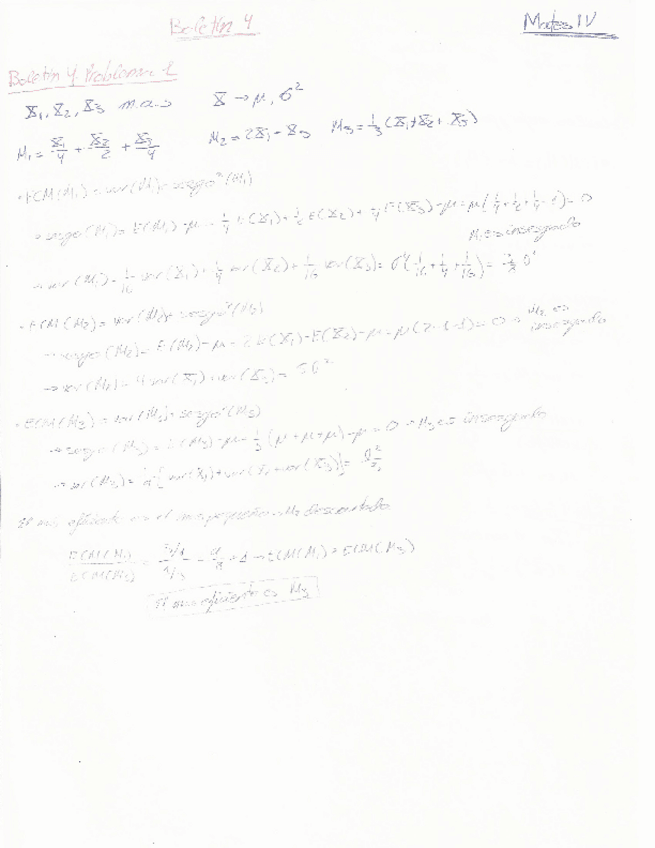 Boletín 4 Mates IV
Boletín 4 Problema 1
X₁, X₂, X₃ m.a.s X → μ, σ²
M₁ = X₁/4 + X₂/2 + X₃/4 M₂ = 2X₁ - X₃ M₃ = 1/3 (X₁ + X₂ + X₃)
· ECM(M₁) = var(M₁) + sesgo²(M₁)
→ sesgo(M₁) = E(M₁) - μ = 1/4 E(X₁) + 1/2 E(X₂) + 1/4 E(X₃) - μ = μ(1/4 + 1/2 + 1/4 - 1) = 0
M₁ es insesgado
→ var(M₁) = 1/16 var(X₁) + 1/4 var(X₂) + 1/16 var(X₃) = σ²(1/16 + 1/4 + 1/16) = 3/8 σ²
· ECM(M₂) = var(M₂) + sesgo²(M₂)
→ sesgo(M₂) = E(M₂) - μ = 2E(X₁) - E(X₂) - μ = μ(2-1-1) = 0 → M₂ es insesgado
→ var(M₂) = 4 var(X₁) + var(X₃) = 5σ²
· ECM(M₃) = var(M₃) + sesgo²(M₃)
→ sesgo(M₃) = E(M₃) - μ = 1/3 (μ + μ + μ) - μ = 0 → M₃ es insesgado
→ var(M₃) = 1/9 [var(X₁) + var(X₂) + var(X₃)] = σ²/3
El más eficiente es el más pequeño → M₂ descartado
ECM(M₁)/ECM(M₃) = 3/8 / 1/3 = 9/8 > 1 → ECM(M₁) > ECM(M₃)
El más eficiente es M₃